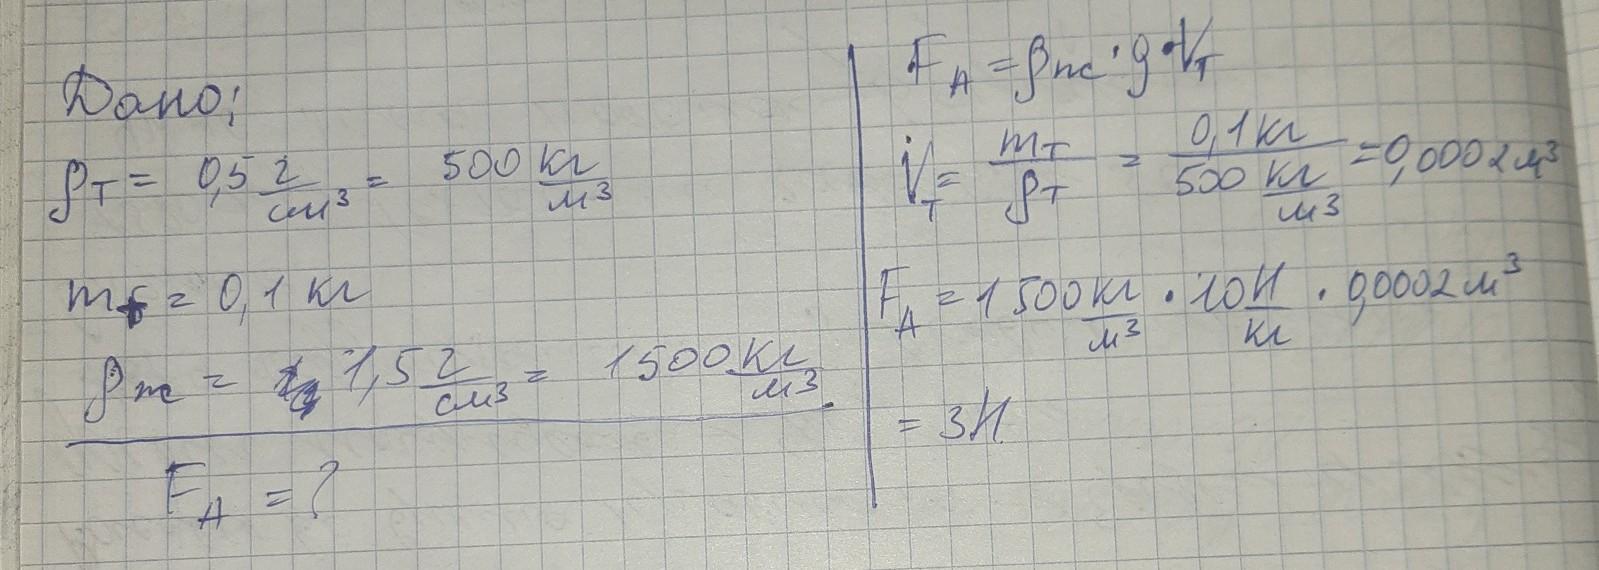 Дано:
ρт = 0,5 г/см³ = 500 кг/м³
mт = 0,1 кг
ρж = 1,5 г/см³ = 1500 кг/м³
FА = ?
FА = ρж · g · Vт
Vт = mт/ρт = 0,1 кг/500 кг/м³ = 0,0002 м³
FА = 1500 кг/м³ · 10 Н/кг · 0,0002 м³
= 3Н